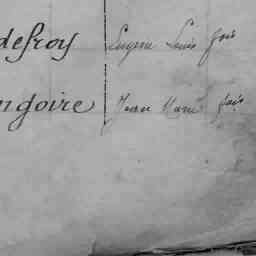 defroy Eugene Louis fois
ngoire Jean Marie fois